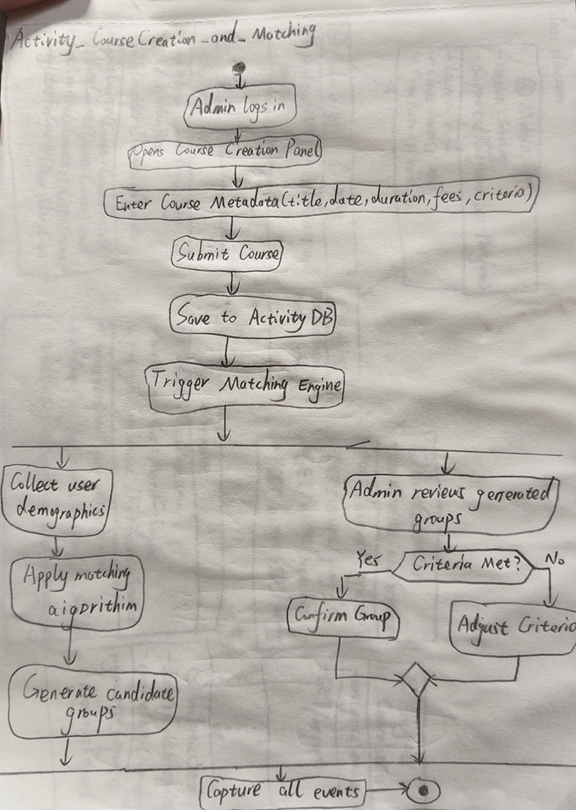 Activity_CourseCreation_and_Matching
Admin logs in
Opens Course Creation Panel
Enter Course Metadata(title,date,duration,fees,criteria)
Submit Course
Save to Activity DB
Trigger Matching Engine
Collect user
demographics
Apply matching
aigorithim
Generate candidate
groups
Admin reviews generated
groups
Criteria Met?
Yes
No
Confirm Group
Adjust Criteria
Capture all events